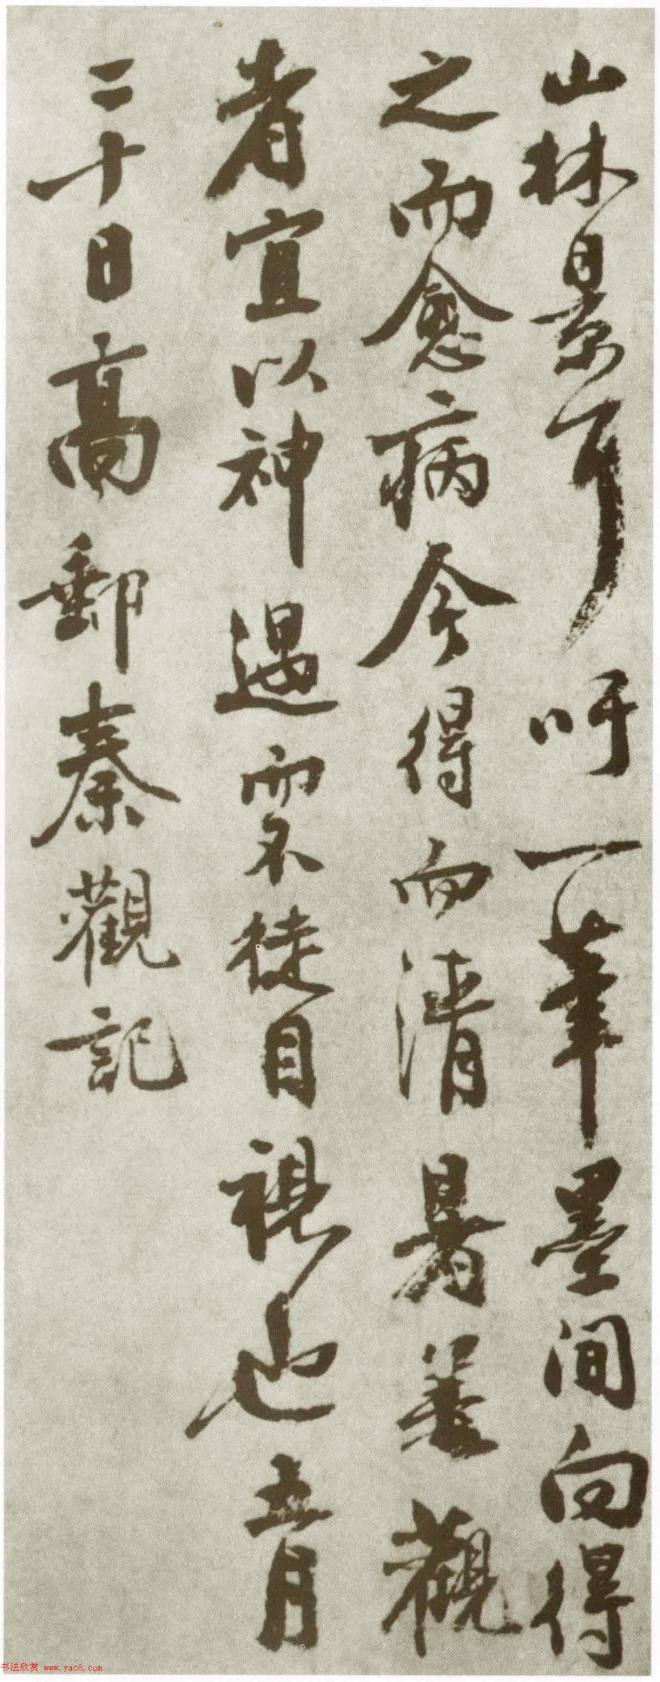 山林景耳吁一筆墨間向得
之而愈病今得而清暑善觀
者宜以神遇而不徒目視也五月
二十日高郵秦觀記
书法欣赏 www.yac8.com